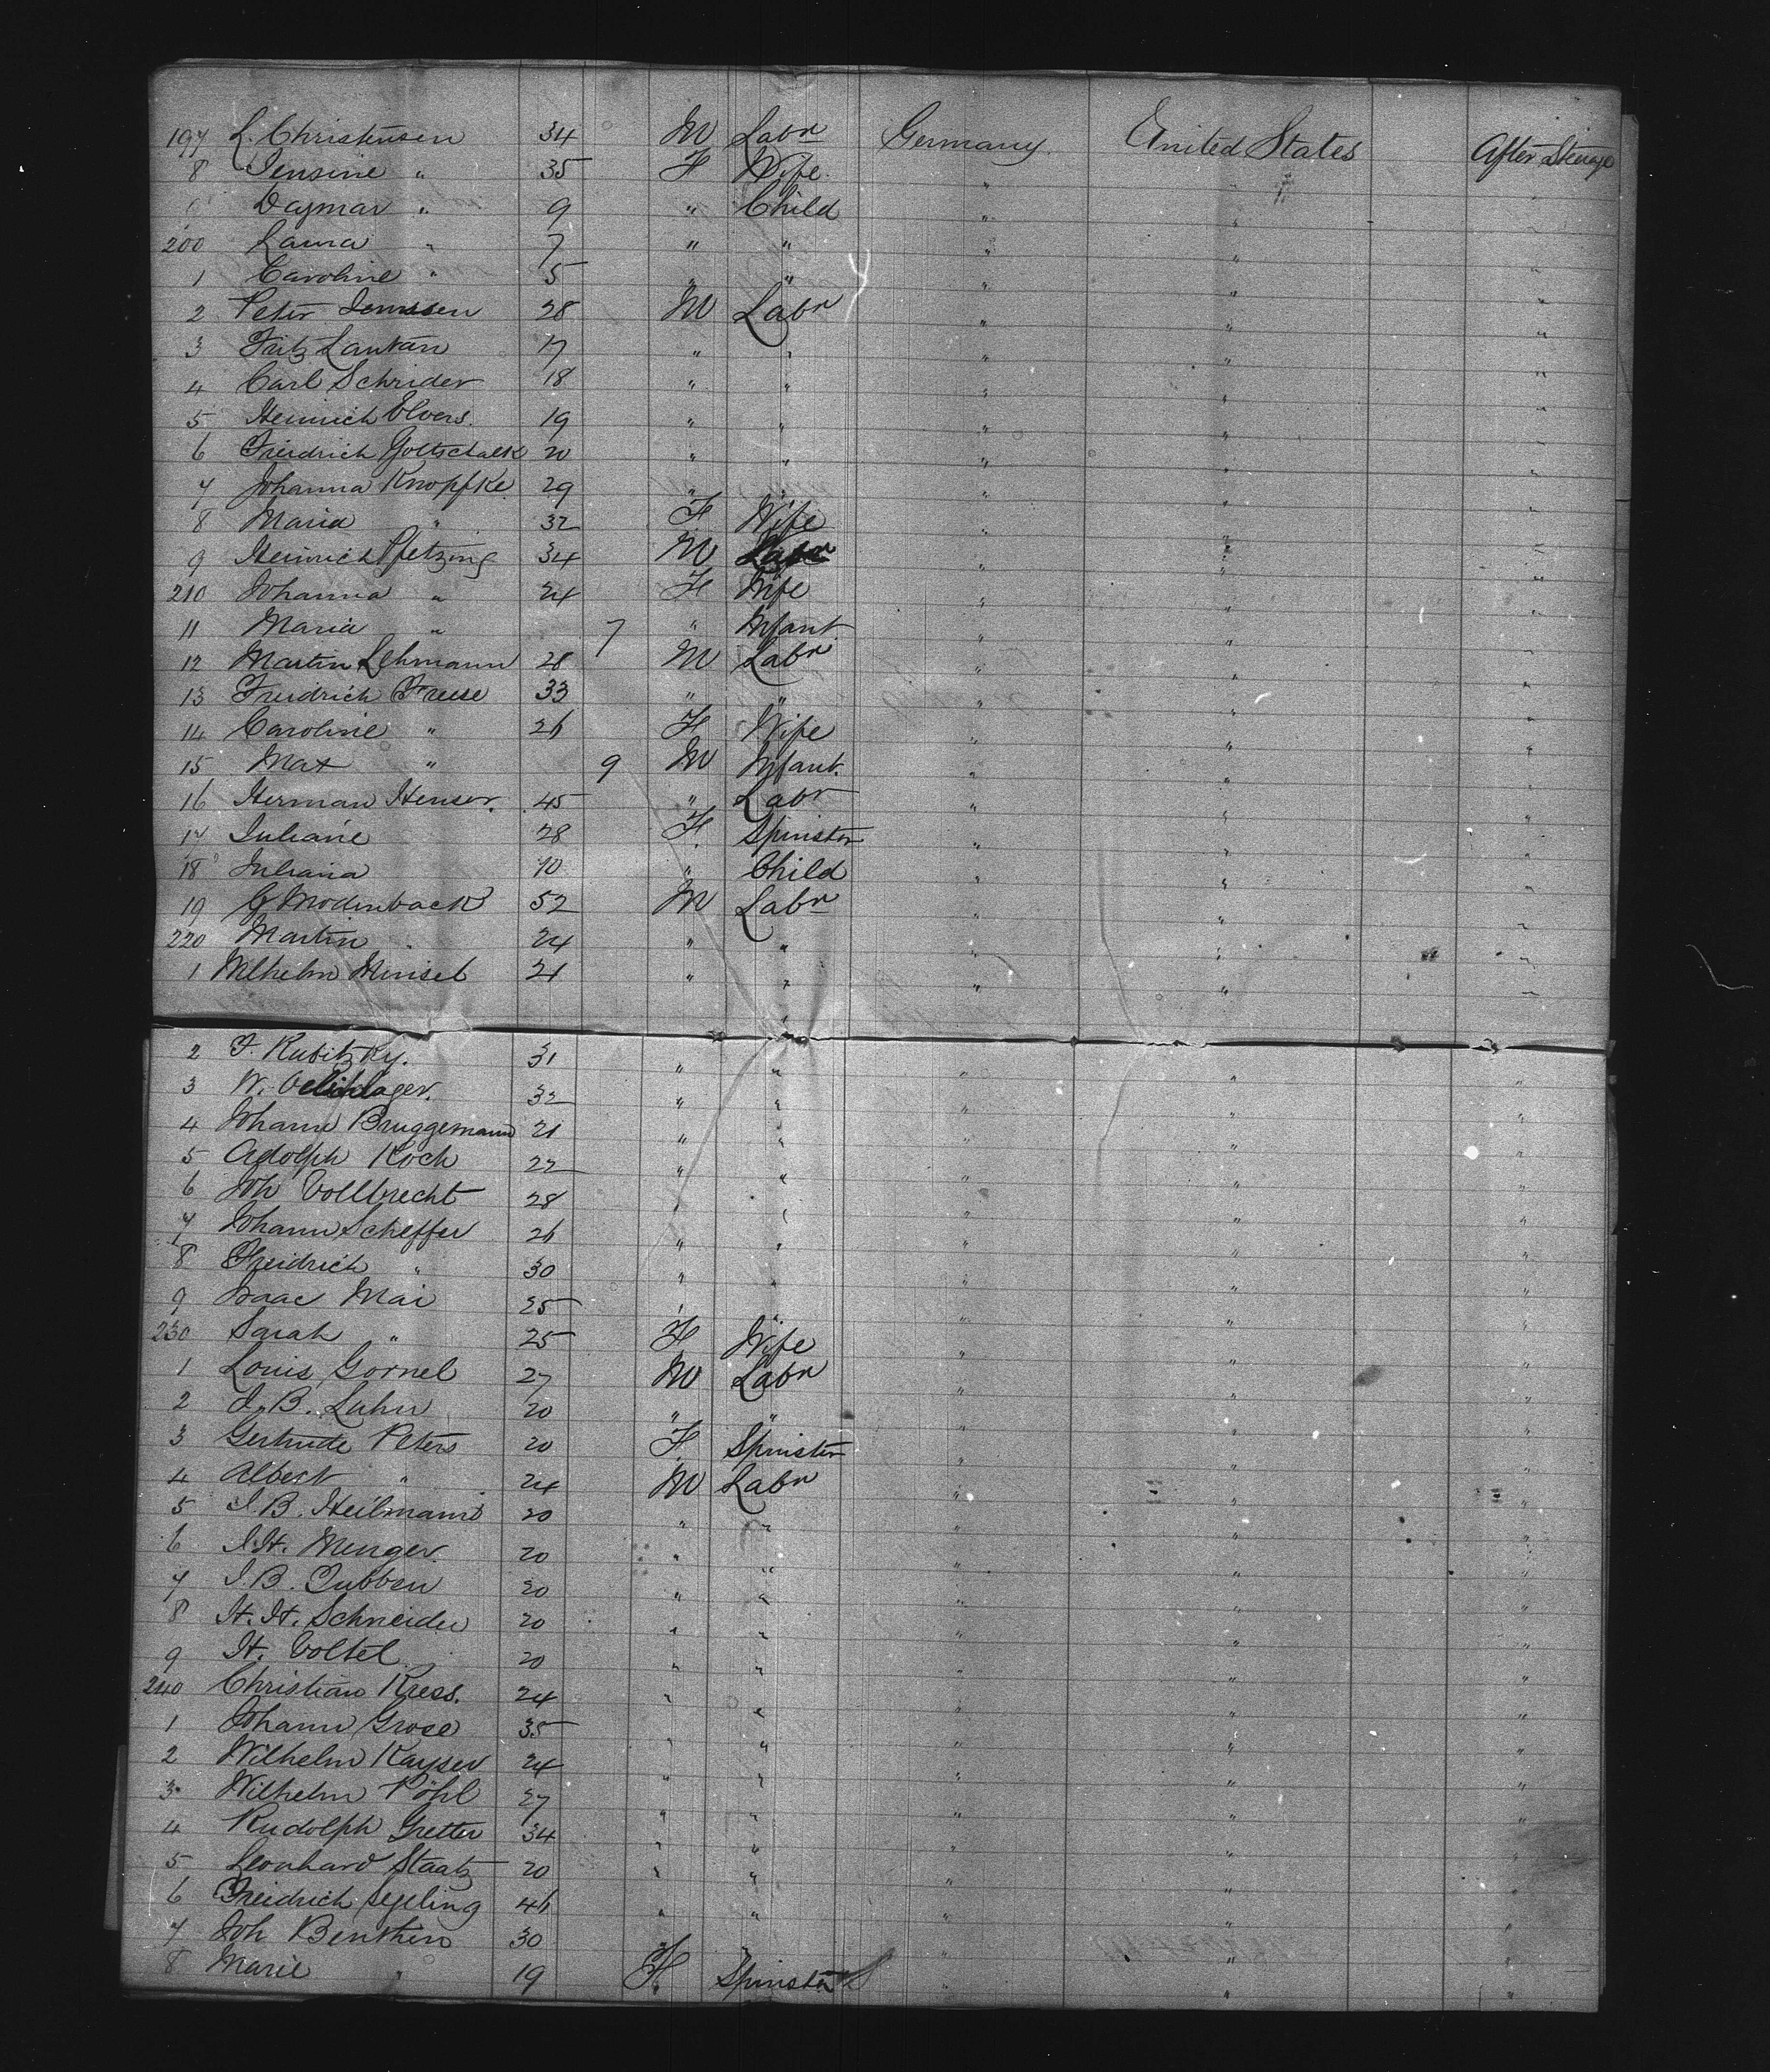 197 L. Christensen 34 M Labr Germany United States After Steerage
8 Jensine " 35 F Wife " " "
Dagmar " 9 " Child " " "
200 Laura " 7 " " " " "
1 Caroline " 5 " " " " "
2 Peter Jenssen 28 M Labr " " "
3 Fritz Lantan 17 " " " " "
4 Carl Schrider 18 " " " " "
5 Heinrich Elvers. 19 " " " " "
6 Freidrich Gottschalk 20 " " " " "
7 Johanna Knopfke 29 " " " " "
8 Maria " 32 F Wife " " "
9 Heinrich Pfetzing 34 M Labr " " "
210 Johanna " 24 F Wife " " "
11 Maria " 7 " Infant " " "
12 Martin Lehmann 28 M Labr " " "
13 Freidrich Freese 33 " " " " "
14 Caroline " 26 F Wife " " "
15 Max " 9 M Infant. " " "
16 Herman Henser. 45 " Labr " " "
17 Juliane 28 F. Spinster " " "
18 Juliana 10 " Child " " "
19 G Modenback 52 M Labr " " "
220 Martin " 24 " " " " "
1 Wilhelm Minsel 21 " " " " "
2 F. Rubitzky. 31 " " " " "
3 W. 32 " " " " "
4 Johann Bruggemann 21 " " " " "
5 Adolph Koch 22 " " " " "
6 Joh Vollbrecht 28 " " " " "
7 Johann Scheffer 26 " " " " "
8 Freidrich " 30 " " " " "
9 Isaac Mai 25 " " " " "
230 Sarah " 25 F Wife " " "
1 Louis Gornel 27 M Labr " " "
2 J. B. Luhn 20 " " " " "
3 Gertrude Peters 20 F. Spinster " " "
4 Albert " 24 M Labr " " "
5 J. B. Heilmann 20 " " " " "
6 J. H. Menger 20 " " " " "
7 J. B. Tubben 20 " " " " "
8 H. H. Schneider 20 " " " " "
9 H. Voltel 20 " " " " "
240 Christian Kress. 24 " " " " "
1 Johann Grose 35 " " " " "
2 Wilhelm Kayser 24 " " " " "
3 Wilhelm Pöhl 27 " " " " "
4 Rudolph Gretter 34 " " " " "
5 Leonhard Staatz 20 " " " " "
6 Freidrich Segeling 46 " " " " "
7 Joh Benthin 30 " " " " "
8 Marie " 19 F. Spinster " " "